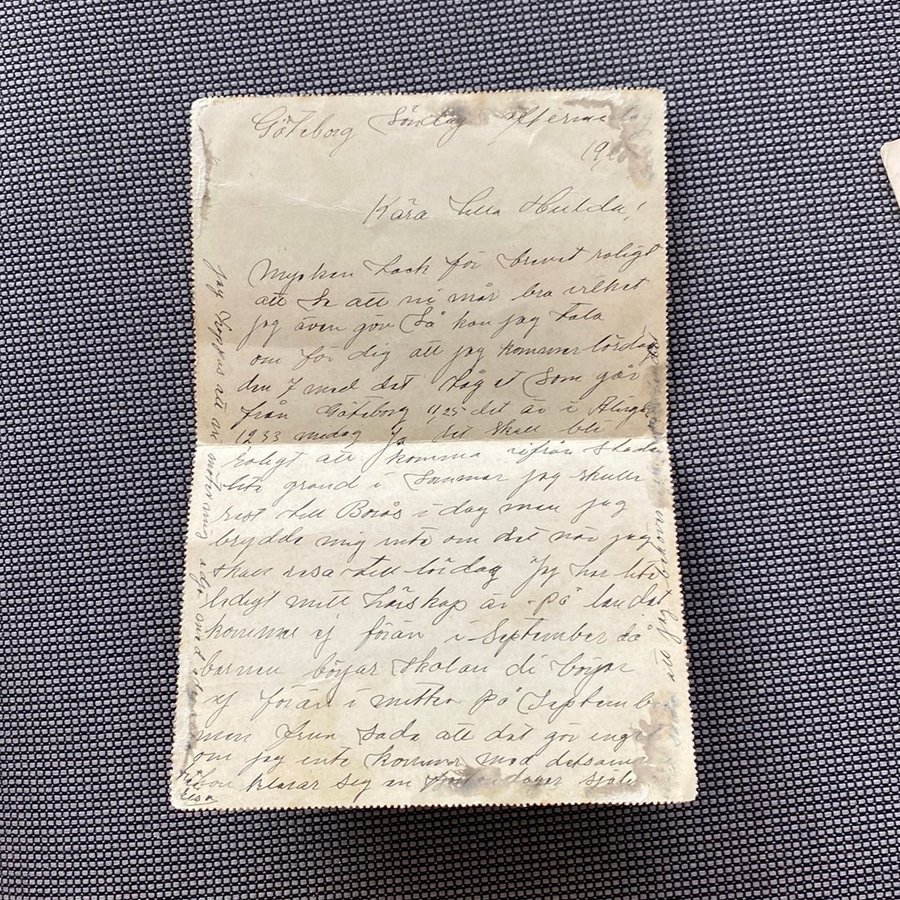 Göteborg Söndag Eftermidag
19
Kära lilla Hulda!
Mycken tack för brevet roligt
att se att ni mår bra vilket
jag även gör Så kan jag tala
om för dig att jag kommer lördag
den 7 med det tåg et Som går
från Göteborg 11,25 det är i Alings
12 33 midag Ja det skall bli
roligt att komma ifrån Staden
lite grand i Sommar jag skulle
rest till Borås i dag men jag
brydde mig inte om det när jag
skall resa till lördag Jag har lite
ledigt mitt härskap är på landet
kommer ej förän i September då
barnen börjar skolan di börjar
ej förän i mitten på September
men frun sade att det gör inget
om jag inte kommer med detsamma
hon klarar sig en dagar själv
Jag hoppas att du möter mig
att jag kommer
Elsa